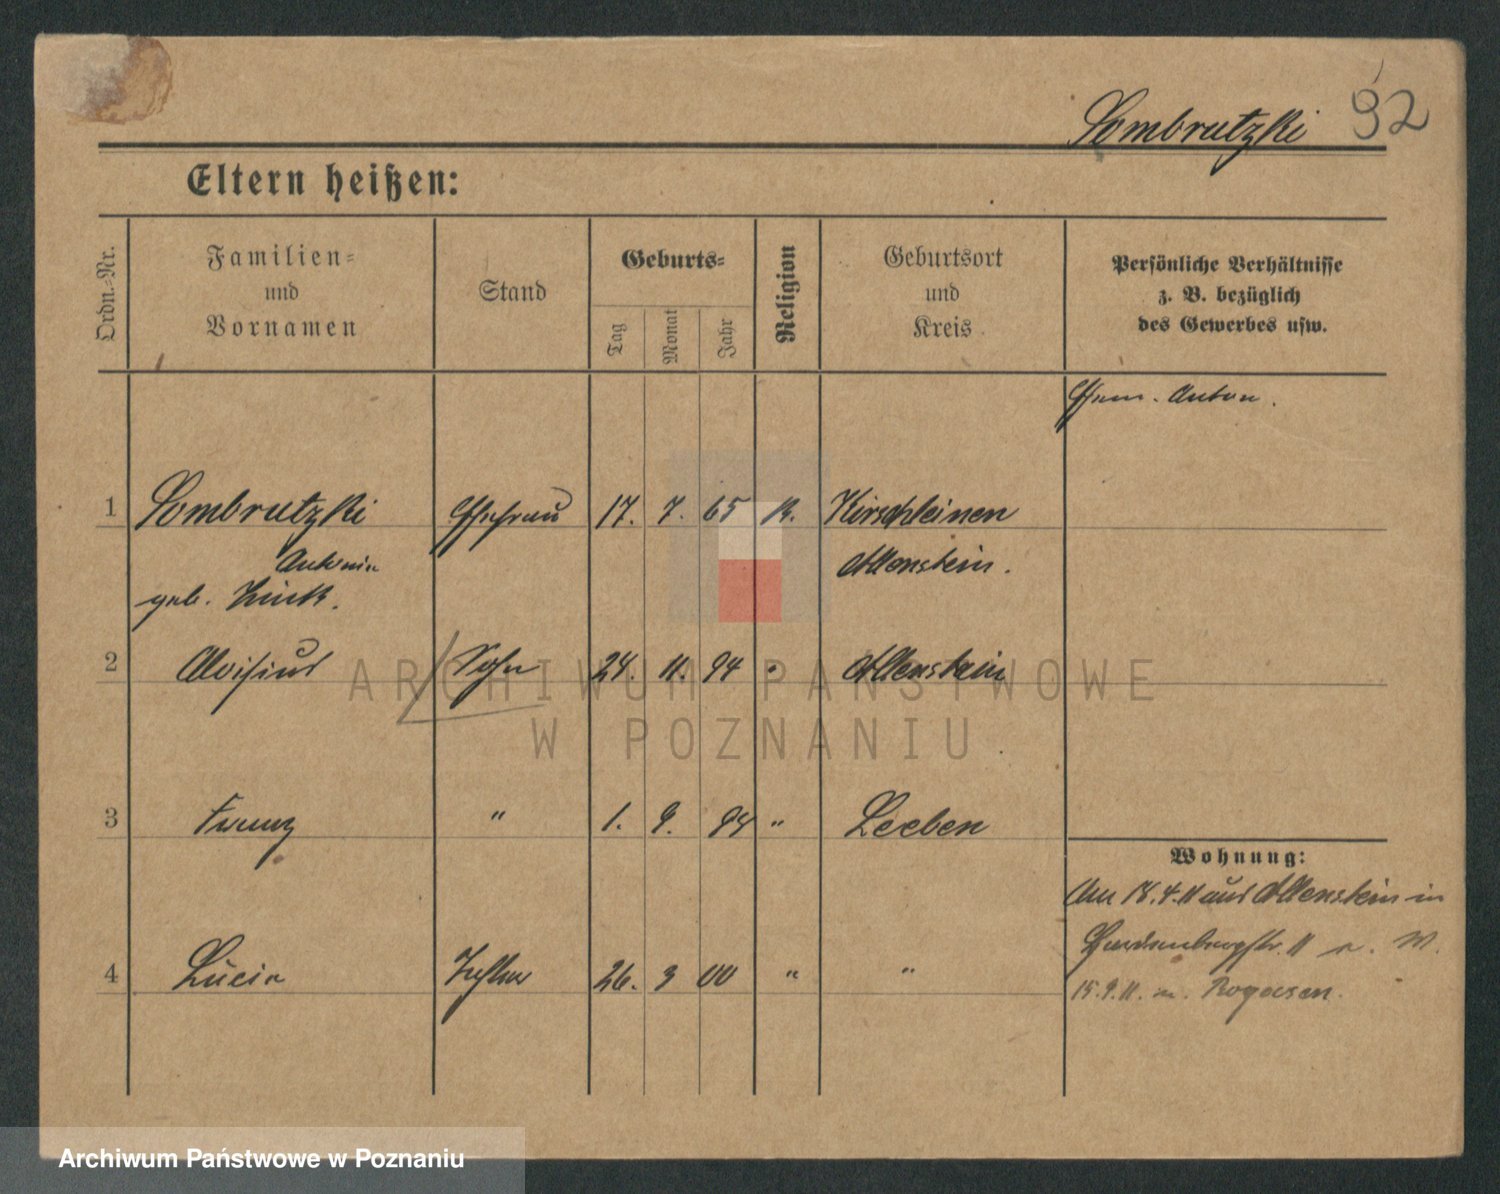 Sombrutzki 92
Eltern heißen:
Ordn.-Nr.
Familien- und Vornamen
Stand
Geburts-
Tag
Monat
Jahr
Religion
Geburtsort und Kreis
Persönliche Verhältnisse
z. B. bezüglich
des Gewerbes usw.
Anton.
1 Sombrutzki Ehefrau 17. 7. 65 K. Kirschleinen
Allenstein.
geb.
2 Aloisius Sohn 24. 11. 94 " Allenstein
3 Franz " 1. 9. " Leeben
Wohnung:
Am 18.4.11 aus Allenstein in
Hardenbergstr. 11
4 Lucia Tochter 26. 3 00 " "
15.9.11. n. Rogasen.
ARCHIWUM PAŃSTWOWE
W POZNANIU
Archiwum Państwowe w Poznaniu